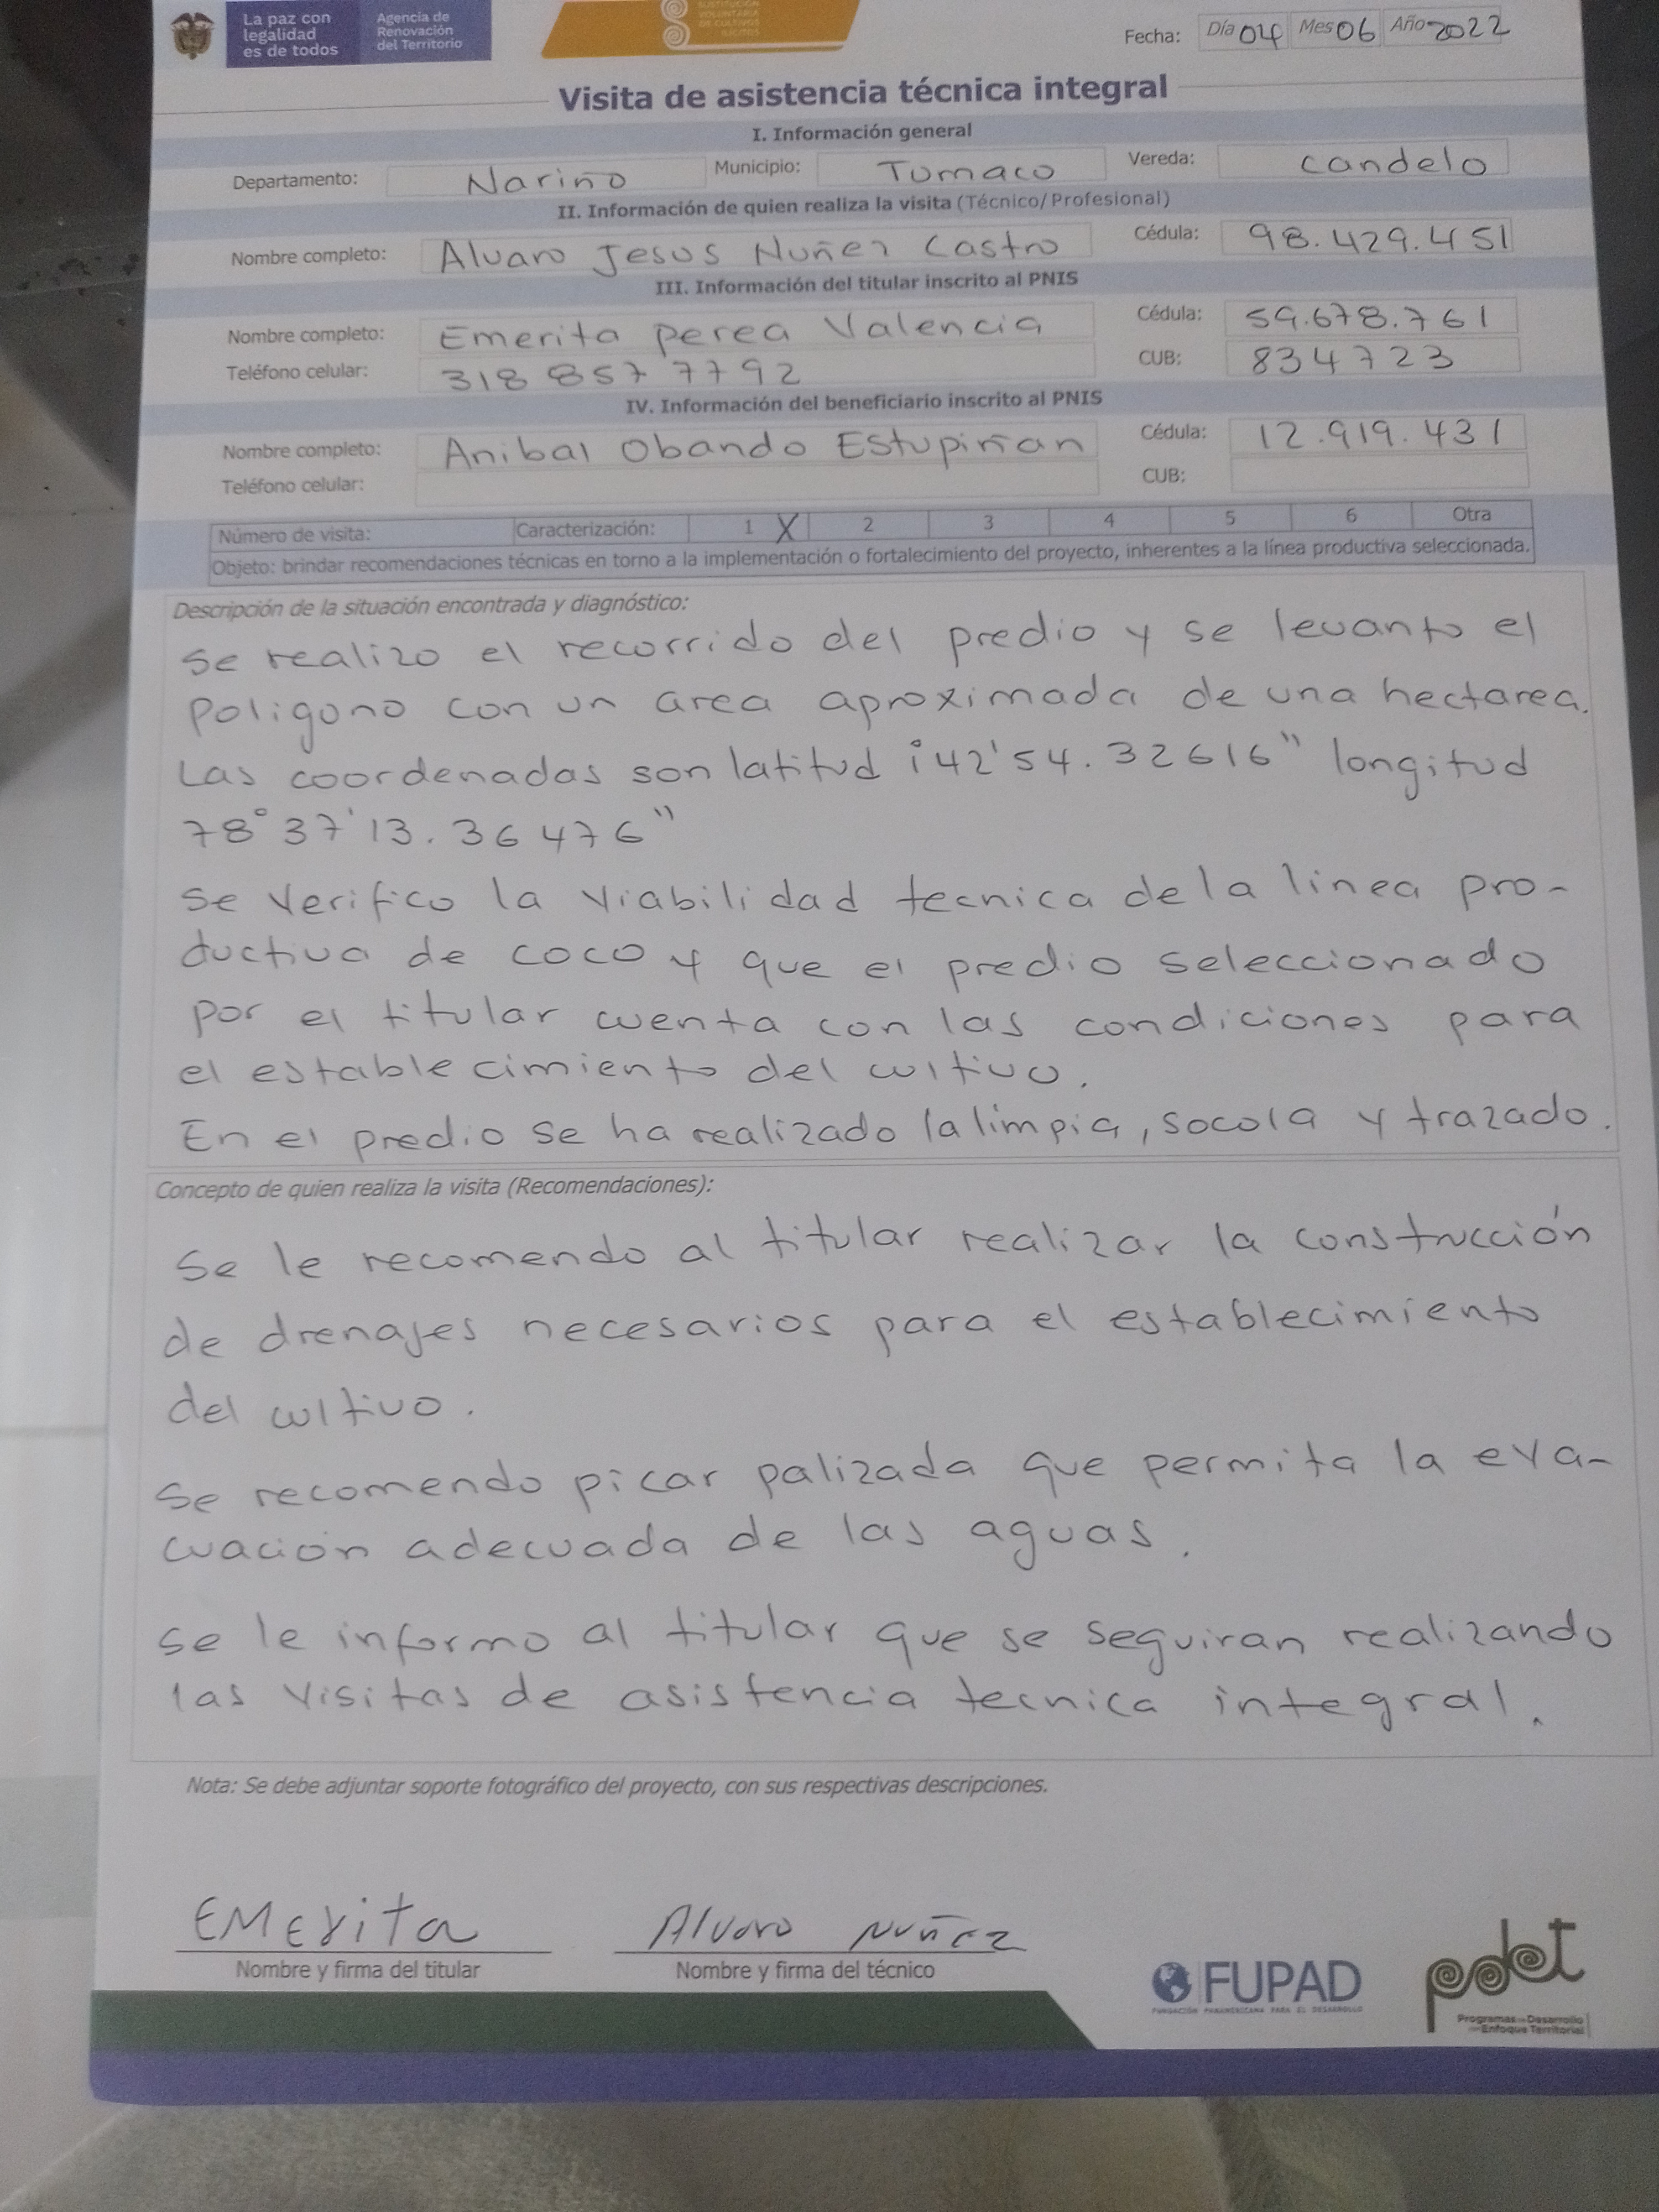 La paz con
legalidad
es de todos
Agencia de
Renovación
del Territorio
SUSTITUCIÓN
VOLUNTARIA
DE CULTIVOS
ILÍCITOS
Fecha: Día 04 Mes 06 Año 2022
Visita de asistencia técnica integral
I. Información general
Departamento: Nariño Municipio: Tumaco Vereda: candelo
II. Información de quien realiza la visita (Técnico/Profesional)
Nombre completo: Alvaro Jesus Nuñez Castro Cédula: 98.429.451
III. Información del titular inscrito al PNIS
Nombre completo: Emerita perea Valencia Cédula: 59.678.761
Teléfono celular: 318 857 7792 CUB: 834723
IV. Información del beneficiario inscrito al PNIS
Nombre completo: Anibal Obando Estupiñan Cédula: 12.919.431
Teléfono celular: CUB:
Número de visita: Caracterización: 1 X 2 3 4 5 6 Otra
Objeto: brindar recomendaciones técnicas en torno a la implementación o fortalecimiento del proyecto, inherentes a la línea productiva seleccionada.
Descripción de la situación encontrada y diagnóstico:
se realizo el recorrido del predio y se levanto el
poligono con un area aproximada de una hectarea.
Las coordenadas son latitud 1°42'54.32616" longitud
78°37'13.36476"
se verifico la viabilidad tecnica de la linea pro-
ductiva de coco y que el predio seleccionado
por el titular cuenta con las condiciones para
el establecimiento del cultivo.
En el predio se ha realizado la limpia, socola y trazado.
Concepto de quien realiza la visita (Recomendaciones):
Se le recomendo al titular realizar la construcción
de drenajes necesarios para el establecimiento
del cultivo.
se recomendo picar palizada que permita la eva-
cuación adecuada de las aguas.
se le informo al titular que se seguiran realizando
las visitas de asistencia tecnica integral.
Nota: Se debe adjuntar soporte fotográfico del proyecto, con sus respectivas descripciones.
EMErita Alvaro Nuñez
Nombre y firma del titular Nombre y firma del técnico
FUPAD
FUNDACIÓN PANAMERICANA PARA EL DESARROLLO
pdet
Programas de Desarrollo
con Enfoque Territorial